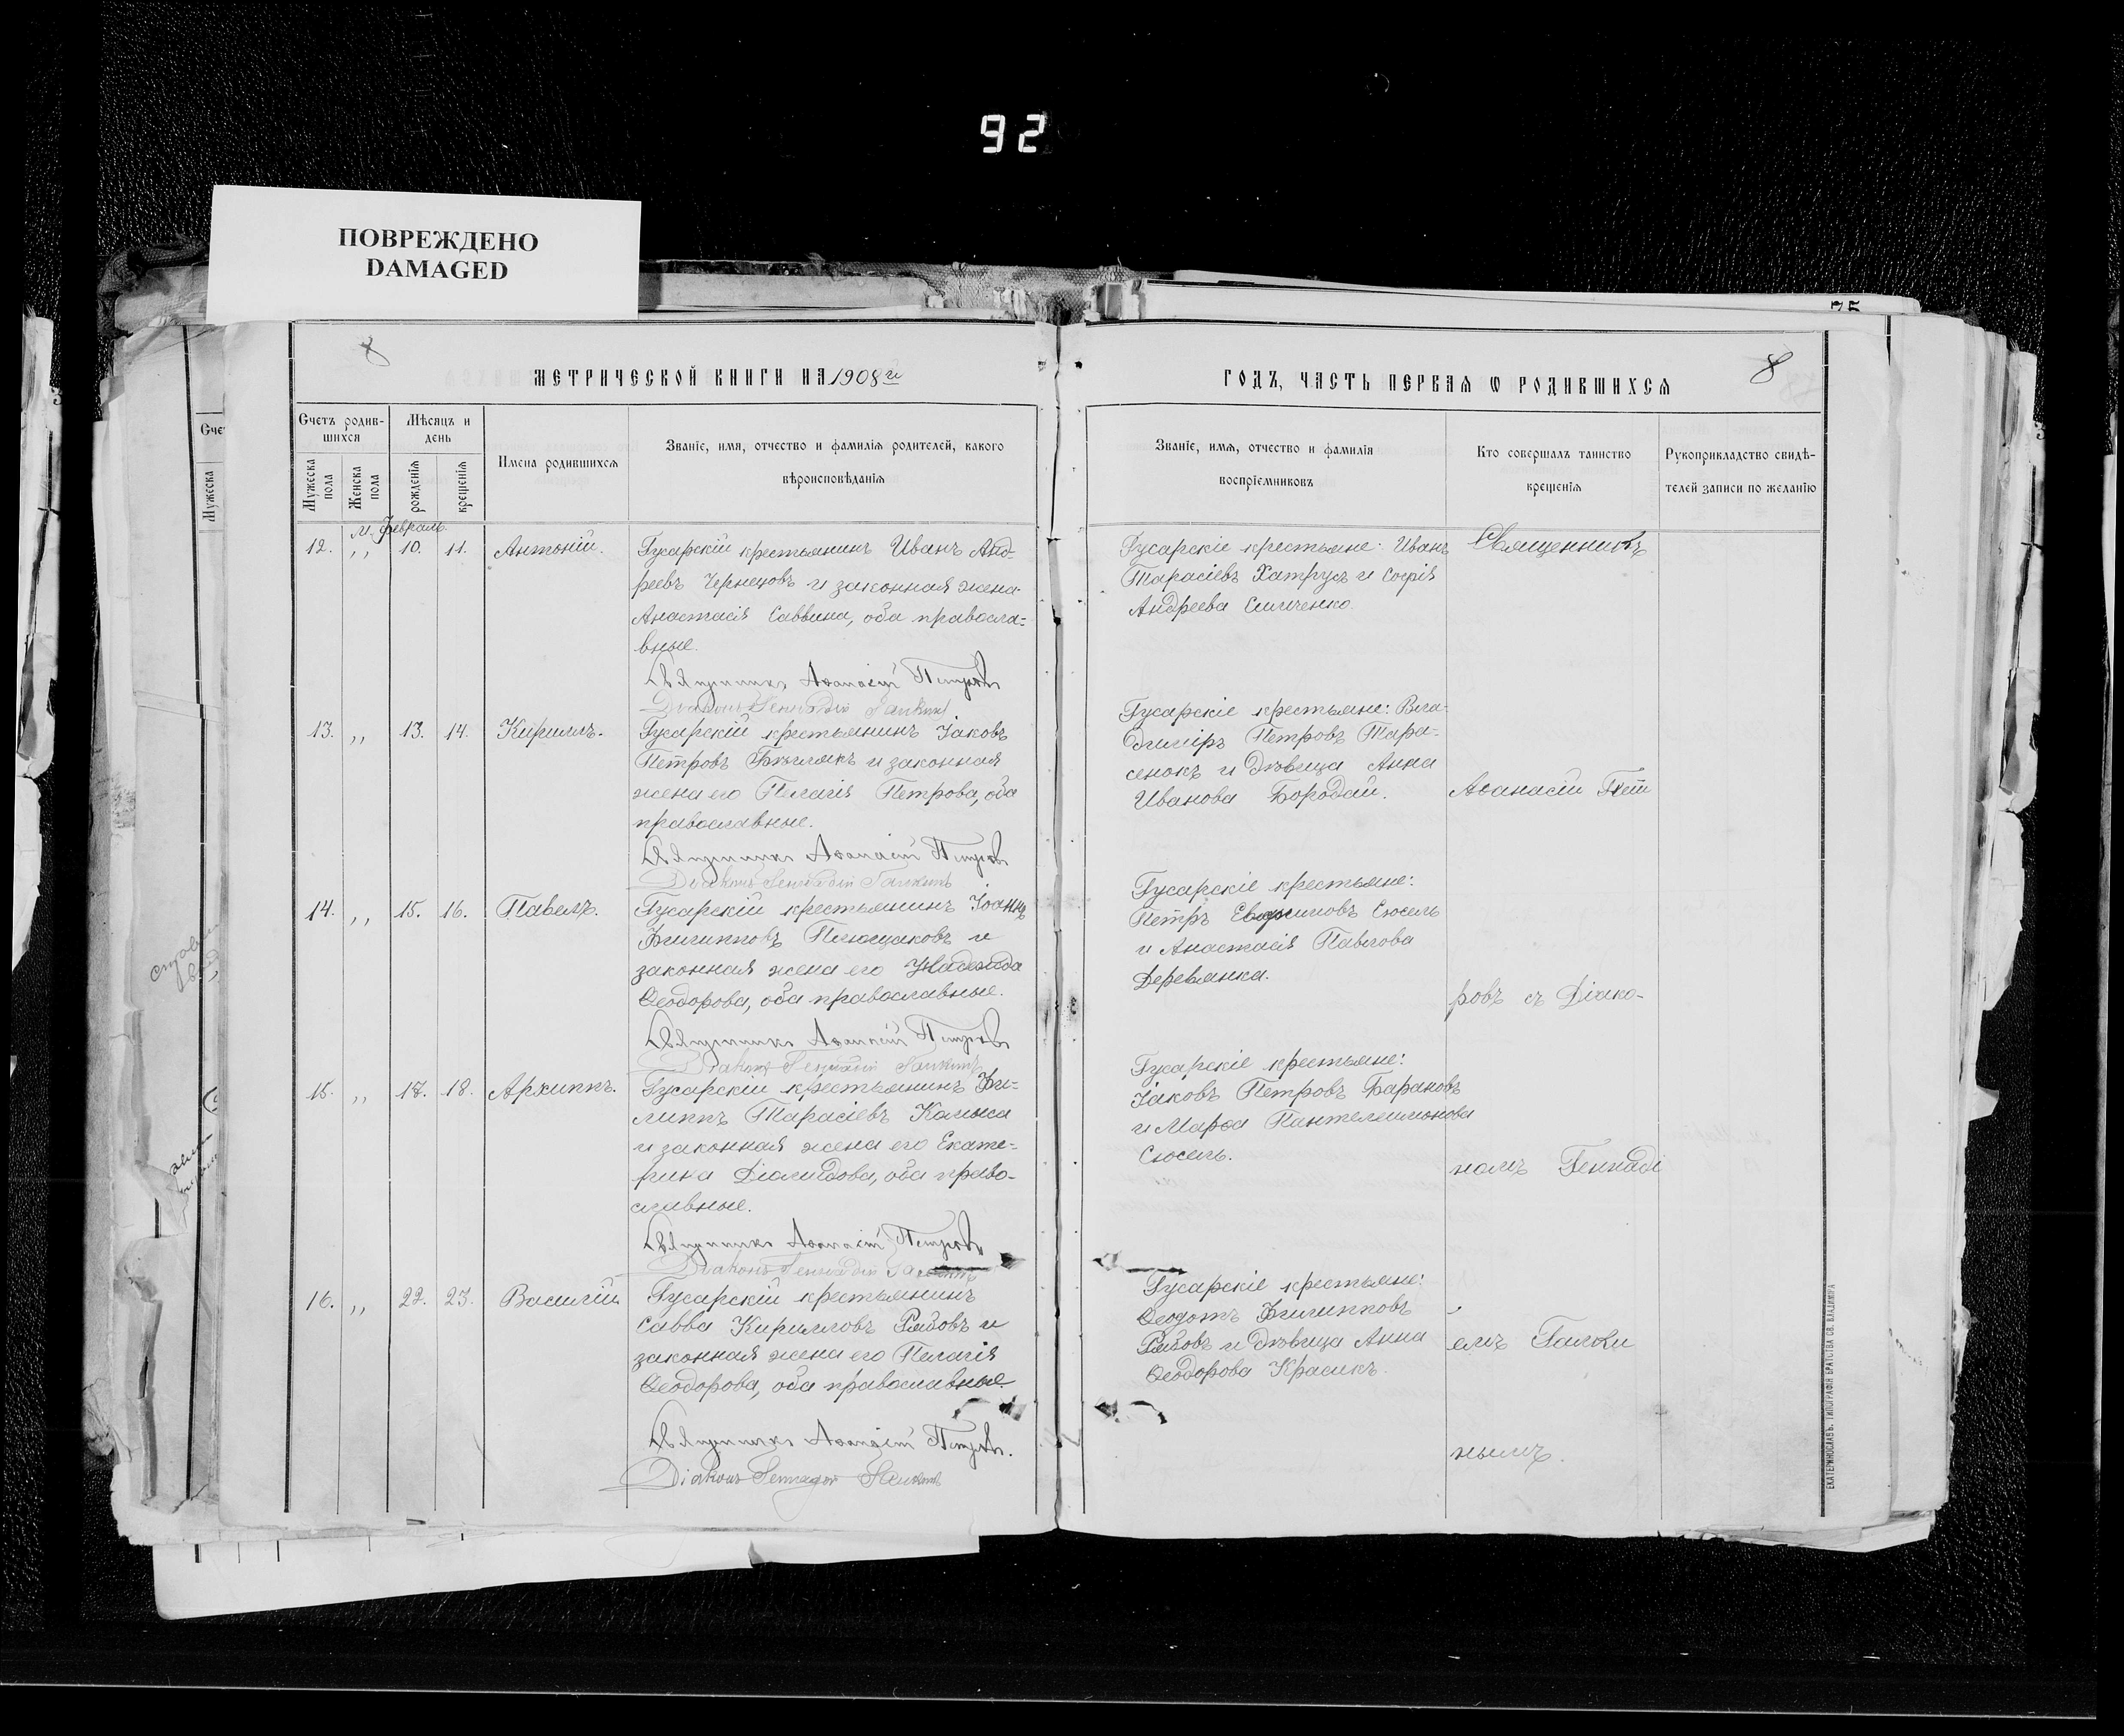 92
ПОВРЕЖДЕНО
DAMAGED
75
8
МЕТРИЧЕСКОЙ КНИГИ НА 1908 й
ГОДЪ, ЧАСТЬ ПЕРВАЯ Ѡ РОДИВШИХСЯ
8
Счетъ родив-
шихся
Мужеска пола
Женска пола
Мѣсяцъ и
день
рожденія
крещенія
Имена родившихся
Званіе, имя, отчество и фамилія родителей, какого
вѣроисповѣданія
Званіе, имя, отчество и фамилія
воспріемниковъ
Кто совершалъ таинство
крещенія
Рукоприкладство свидѣ-
телей записи по желанію
м. Февраль.
12. „ 10. 11. Антоній.
Гусарскій крестьянинъ Иванъ Анд-
реевъ Чернецовъ и законная жена
Анастасія Саввина, оба правосла-
вные.
Священникъ Аѳанасій Петровъ
Діаконъ Геннадій
Гусарскіе крестьяне: Иванъ
Тарасіевъ Хатрусъ и Софія
Андреева
13. „ 13. 14. Кириллъ.
Гусарскій крестьянинъ Іаковъ
Петровъ и законная
жена его Пелагія Петрова, оба
православные.
Священникъ Аѳанасій Петровъ
Діаконъ Геннадій
Гусарскіе крестьяне: Вла-
диміръ Петровъ Тара-
сенокъ и дѣвица Анна
Иванова Бородай.
14. „ 15. 16. Павелъ.
Гусарскій крестьянинъ Іоаннъ
Филипповъ и
законная жена его Надежда
Ѳеодорова, оба православные.
Священникъ Аѳанасій Петровъ
Діаконъ Геннадій
Гусарскіе крестьяне:
Петръ Сюсель
и Анастасія Павлова
Деревянка.
15. „ 17. 18. Архиппъ.
Гусарскій крестьянинъ Фи-
липпъ Тарасіевъ
и законная жена его Екате-
рина Діомидова, оба право-
славные.
Священникъ Аѳанасій Петровъ
Діаконъ Геннадій
Гусарскіе крестьяне:
Іаковъ Петровъ Барановъ
и Марѳа Пантелеимонова
Сюсель.
16. „ 22. 23. Василій
Гусарскій крестьянинъ
Савва Кирилловъ Рябовъ и
законная жена его Пелагія
Ѳеодорова, оба православные.
Священникъ Аѳанасій Петровъ.
Діаконъ
Гусарскіе крестьяне:
Ѳеодотъ Филипповъ
Рябовъ и дѣвица Анна
Ѳеодорова Красикъ.
Священникъ
Аѳанасій Пет
ровъ съ Діако-
номъ Геннаді
емъ
нымъ.
ЕКАТЕРИНОСЛАВЪ. ТИПОГРАФІЯ БРАТСТВА СВ. ВЛАДИМІРА